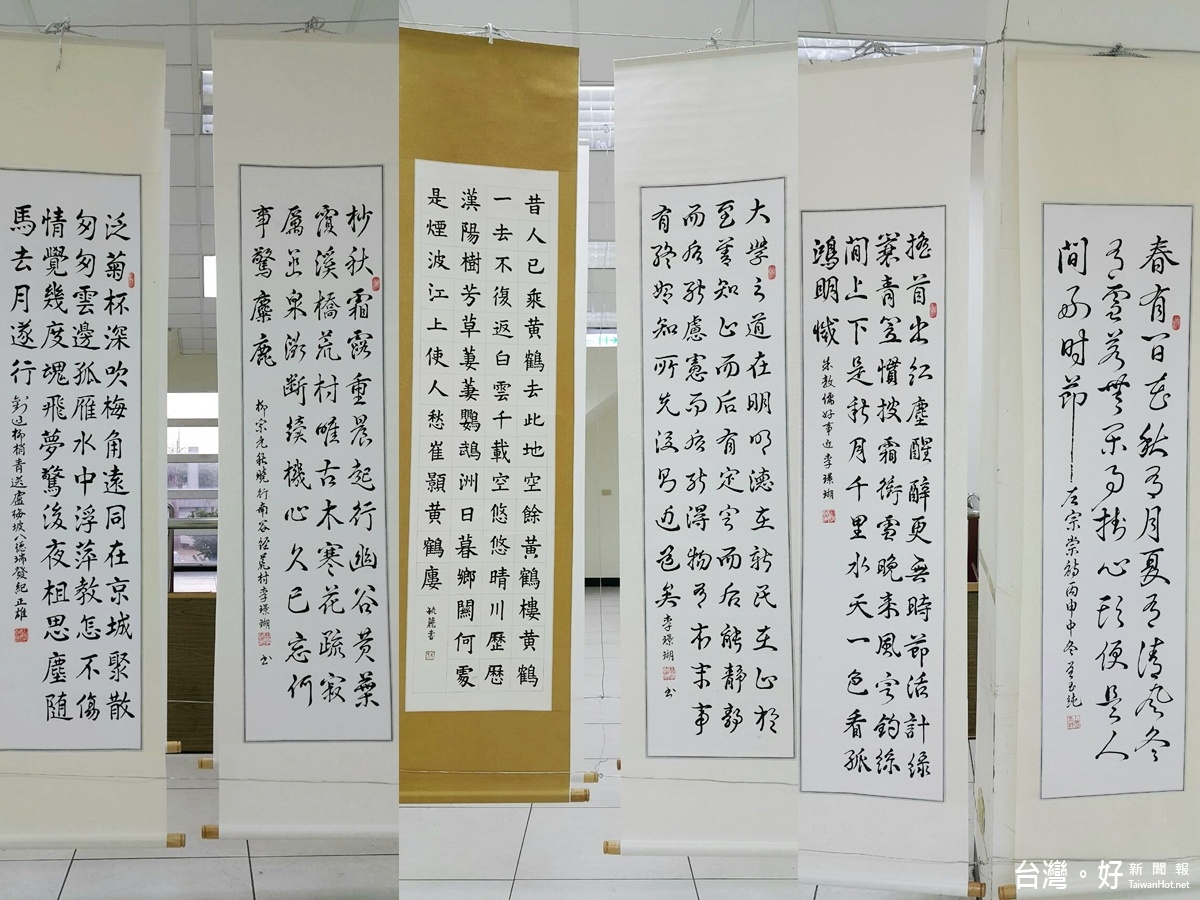 春有百花秋有月夏有清風冬
有雪若無閑事掛心頭便是人
間好时節
左宗棠詩丙申中冬 玉純
搖首出紅塵醒醉更無時節活計綠
蓑青笠慣披霜衝雪晚来風定釣絲
間上下是新月千里水天一色看孤
鴻明滅
朱敦儒好事近李璟瑚
大學之道在明明德在新民在止於
至善知止而后有定定而后能靜靜
而后能慮慮而后能得物有本末事
有終始知所先後則近道矣
李璟瑚書
昔人已乘黃鶴去此地空餘黃鶴樓黃鶴
一去不復返白雲千載空悠悠晴川歷歷
漢陽樹芳草萋萋鸚鵡洲日暮鄉關何處
是煙波江上使人愁崔顥黃鶴樓
姚麗香
杪秋霜露重晨起行幽谷黃葉
覆溪橋荒村唯古木寒花疏寂
歷幽泉微斷續機心久已忘何
事驚麋鹿
柳宗元秋曉行南谷經荒村李璟瑚書
泛菊杯深吹梅角遠同在京城聚散
匆匆雲邊孤雁水中浮萍教怎不傷
情覺幾度魂飛夢驚後夜相思塵隨
馬去月逐行
劉過柳梢青送盧梅坡 紀正雄
台灣。好新聞報
TaiwanHot.net